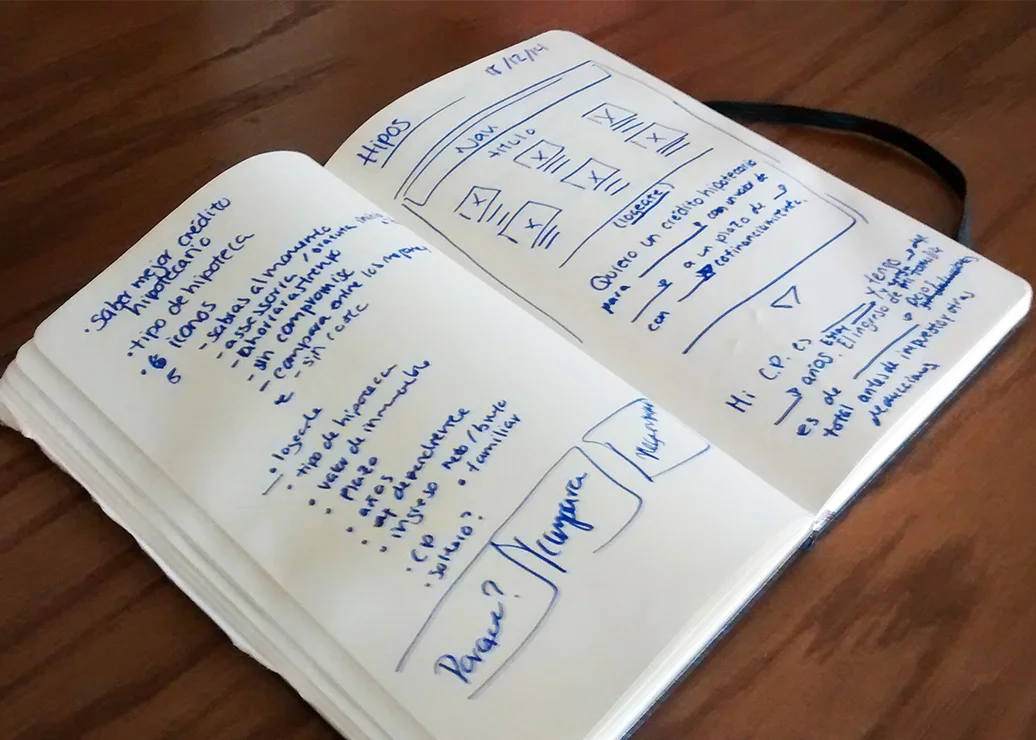 • Saber mejor crédito
hipotecario
• tipo de hipoteca
• 6 iconos
6
- sabias al momento
- assessoria / gratuita
- ahorrar
- sin compromiso
- compara entre los mejores
- sin costo
• logeate
• tipo de hipoteca
• valor de inmueble
• plazo
• años
• ingreso neto / bruto
• familiar
• CP
• soltero?
Compara
18/12/14
HIPOS
Nav
titulo
(logeate)
Quiero un crédito hipotecario
para con un valor de
a un plazo de
con cofinanciamiento.
Mi C.P. es y tengo
años. El ingreso de mi familia
es de
total antes de impuestos u otras
deducciones